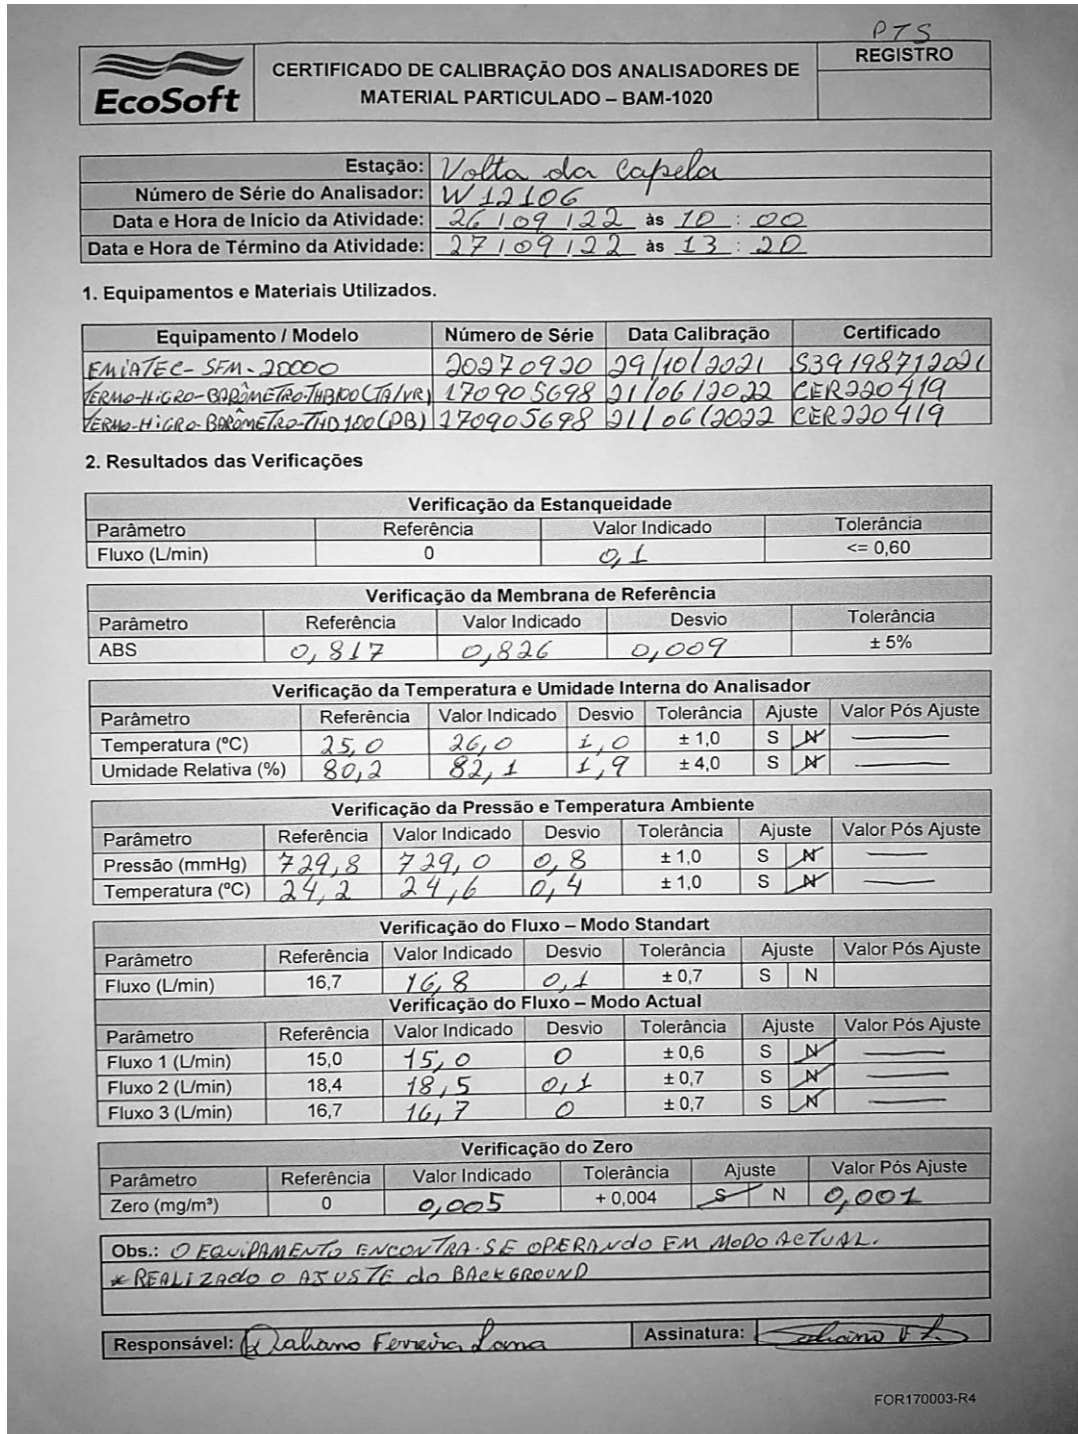 PTS
REGISTRO
EcoSoft
CERTIFICADO DE CALIBRAÇÃO DOS ANALISADORES DE
MATERIAL PARTICULADO – BAM-1020
Estação: Volta da Capela
Número de Série do Analisador: W12106
Data e Hora de Início da Atividade: 26/09/22 às 10:00
Data e Hora de Término da Atividade: 27/09/22 às 13:20
1. Equipamentos e Materiais Utilizados.
Equipamento / Modelo Número de Série Data Calibração Certificado
EMIATEC-SFM-20000 20270920 29/10/2021 S39198712021
TERMO-HIGRO-BARÔMETRO-THB100(TA/UR) 170905698 21/06/2022 CER220419
TERMO-HIGRO-BARÔMETRO-THD100(PB) 170905698 21/06/2022 CER220419
2. Resultados das Verificações
Verificação da Estanqueidade
Parâmetro Referência Valor Indicado Tolerância
Fluxo (L/min) 0 0,1 <= 0,60
Verificação da Membrana de Referência
Parâmetro Referência Valor Indicado Desvio Tolerância
ABS 0,817 0,826 0,009 ± 5%
Verificação da Temperatura e Umidade Interna do Analisador
Parâmetro Referência Valor Indicado Desvio Tolerância Ajuste Valor Pós Ajuste
Temperatura (ºC) 25,0 26,0 1,0 ± 1,0 S N
Umidade Relativa (%) 80,2 82,1 1,9 ± 4,0 S N
Verificação da Pressão e Temperatura Ambiente
Parâmetro Referência Valor Indicado Desvio Tolerância Ajuste Valor Pós Ajuste
Pressão (mmHg) 729,8 729,0 0,8 ± 1,0 S N
Temperatura (ºC) 24,2 24,6 0,4 ± 1,0 S N
Verificação do Fluxo – Modo Standart
Parâmetro Referência Valor Indicado Desvio Tolerância Ajuste Valor Pós Ajuste
Fluxo (L/min) 16,7 16,8 0,1 ± 0,7 S N
Verificação do Fluxo – Modo Actual
Parâmetro Referência Valor Indicado Desvio Tolerância Ajuste Valor Pós Ajuste
Fluxo 1 (L/min) 15,0 15,0 0 ± 0,6 S N
Fluxo 2 (L/min) 18,4 18,5 0,1 ± 0,7 S N
Fluxo 3 (L/min) 16,7 16,7 0 ± 0,7 S N
Verificação do Zero
Parâmetro Referência Valor Indicado Tolerância Ajuste Valor Pós Ajuste
Zero (mg/m³) 0 0,005 + 0,004 S N 0,001
Obs.: O EQUIPAMENTO ENCONTRA-SE OPERANDO EM MODO ACTUAL.
* REALIZADO O AJUSTE do BACKGROUND
Responsável: Ferreira Assinatura:
FOR170003-R4